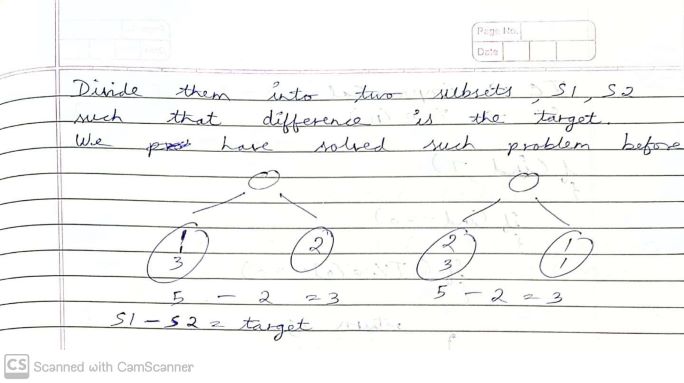 Page No.
Date
Divide them into two subsets, S1, S2
such that difference is the target.
We have solved such problem before
1 2 2 1
3 3 1
5 - 2 = 3 5 - 2 = 3
S1 - S2 = target
CS Scanned with CamScanner